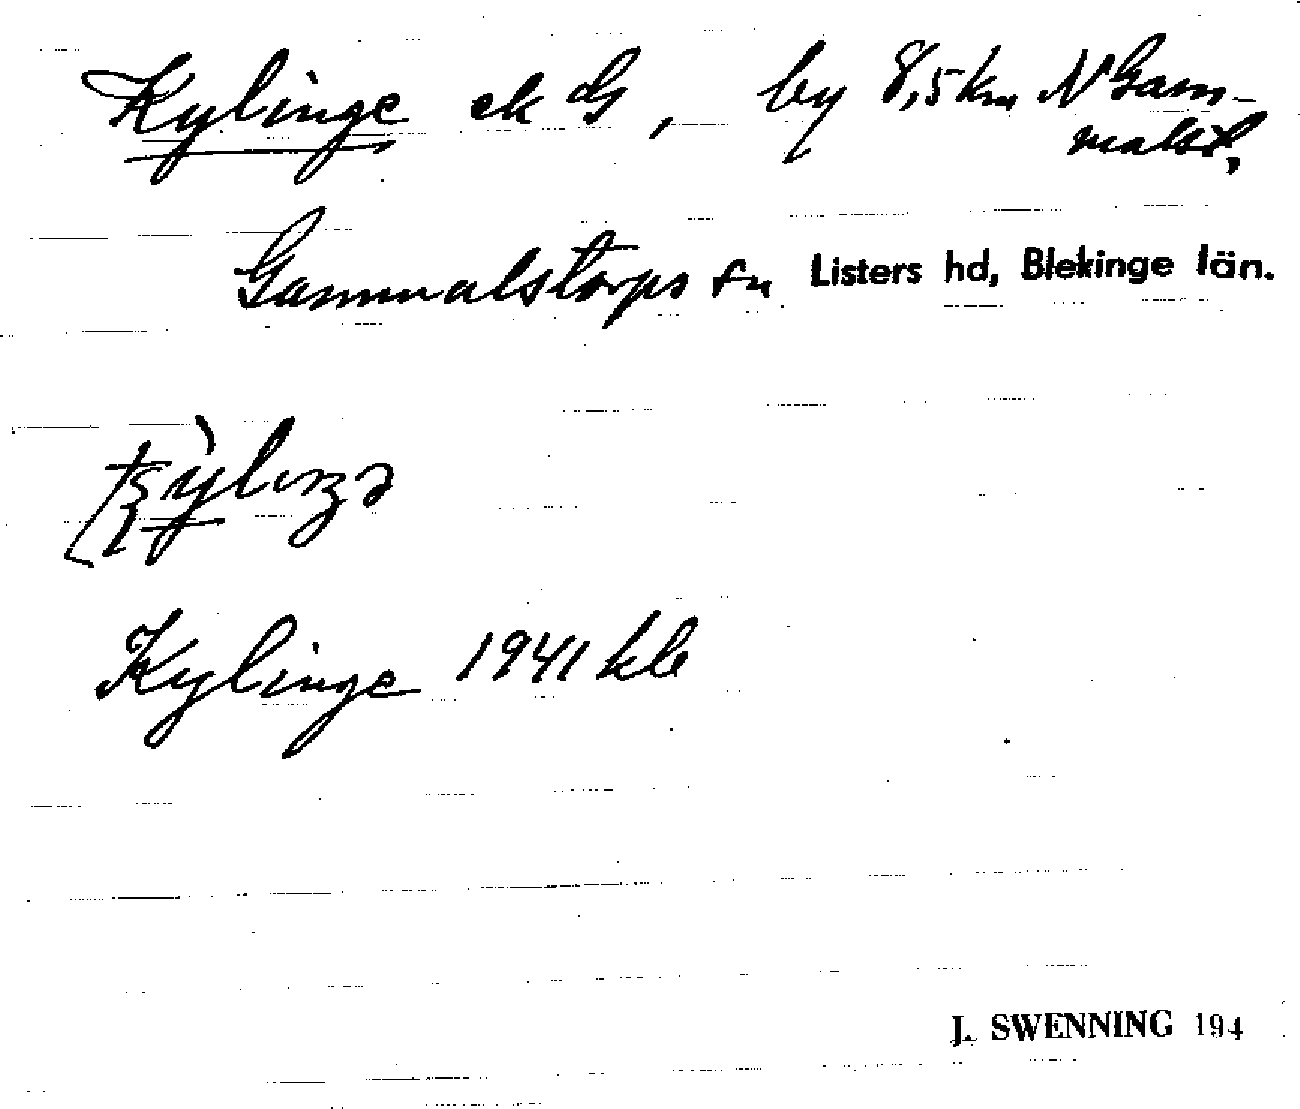 Kylinge ek G, by 8,5 km N Gam-
malst.
Gammalstorps sn Listers hd, Blekinge län.
Kylinge 1941 kle
J. SWENNING 194